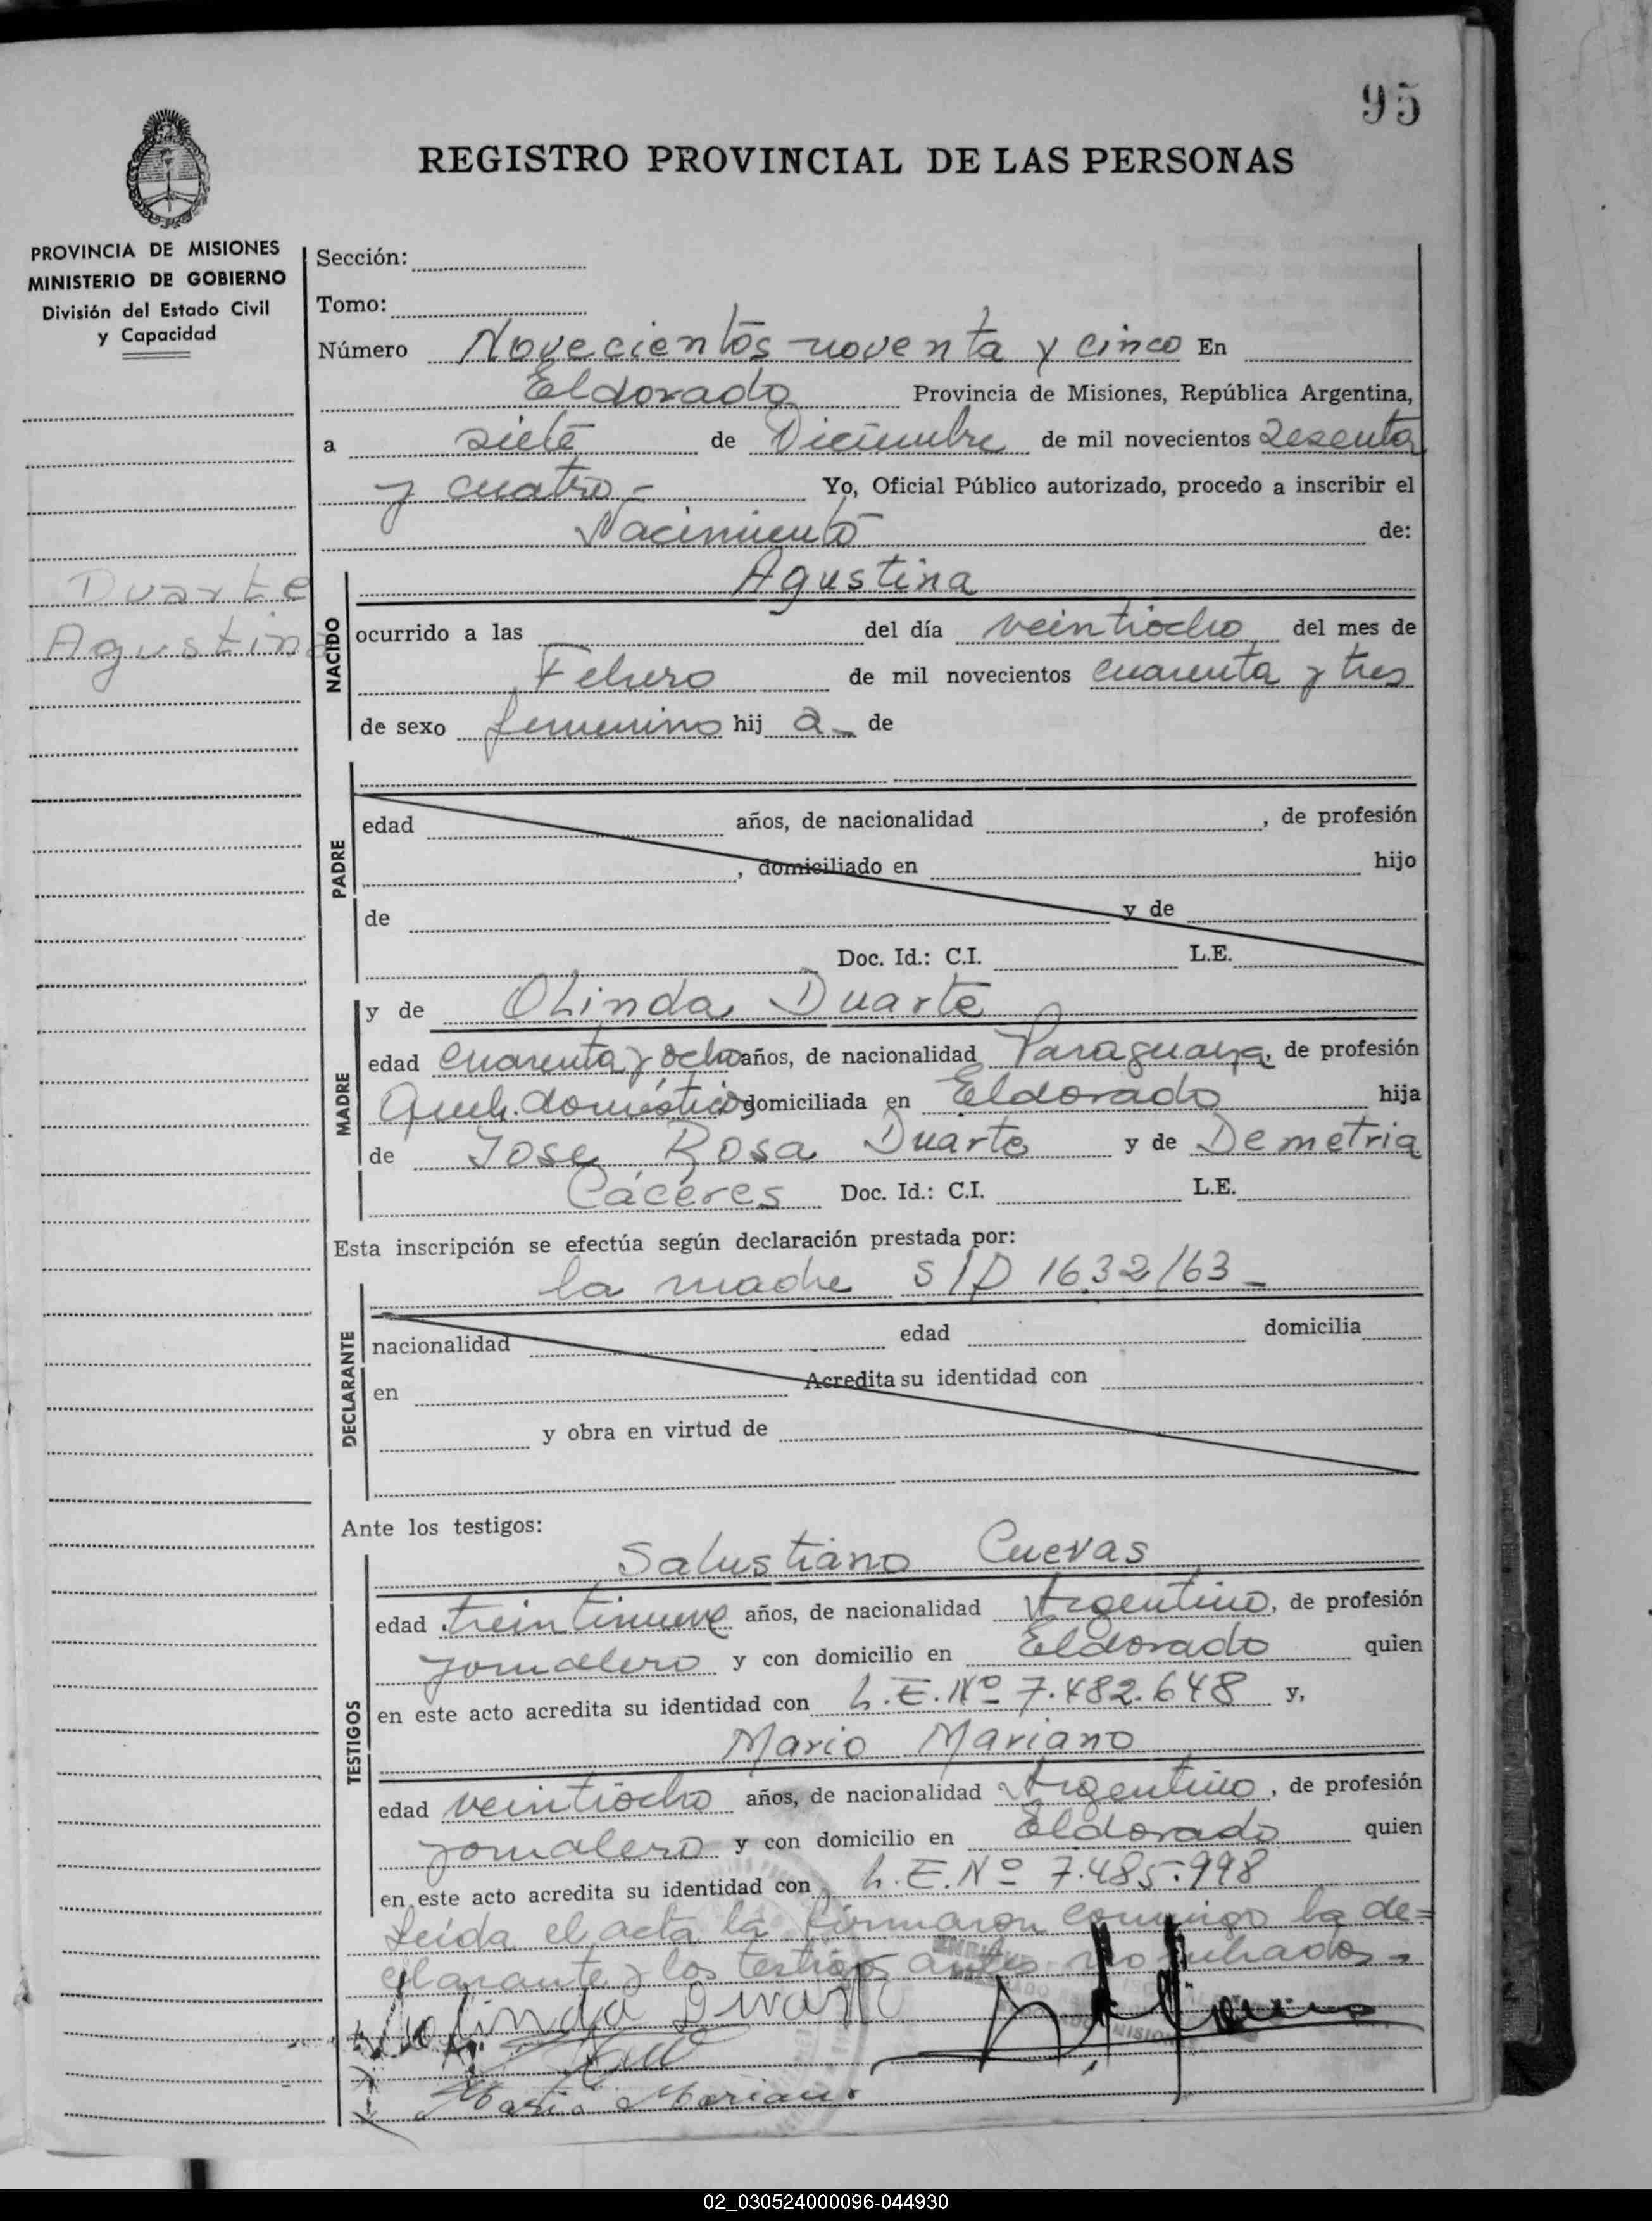 95
REGISTRO PROVINCIAL DE LAS PERSONAS
PROVINCIA DE MISIONES
MINISTERIO DE GOBIERNO
División del Estado Civil
y Capacidad
Duarte
Agustina
Sección:
Tomo:
Número Novecientos noventa y cinco En
Eldorado Provincia de Misiones, República Argentina,
a siete de Diciembre de mil novecientos sesenta
y cuatro - Yo, Oficial Público autorizado, procedo a inscribir el
Nacimiento de:
NACIDO
Agustina
ocurrido a las del día veintiocho del mes de
Febrero de mil novecientos cuarenta y tres
de sexo femenino hij a - de
PADRE
edad años, de nacionalidad , de profesión
, domiciliado en hijo
de y de
Doc. Id.: C.I. L.E.
MADRE
y de Olinda Duarte
edad cuarenta y ocho años, de nacionalidad Paraguaya, de profesión
Queh. domésticos domiciliada en Eldorado hija
de Jose Rosa Duarte y de Demetria
Cáceres Doc. Id.: C.I. L.E.
Esta inscripción se efectúa según declaración prestada por:
la madre S/D 1632/63 -
DECLARANTE
nacionalidad edad domicilia
en Acredita su identidad con
y obra en virtud de
Ante los testigos:
TESTIGOS
Salustiano Cuevas
edad treintinueve años, de nacionalidad Argentino, de profesión
jornalero y con domicilio en Eldorado quien
en este acto acredita su identidad con L.E.Nº 7.482.648 y,
Mario Mariano
edad veintiocho años, de nacionalidad Argentino, de profesión
jornalero y con domicilio en Eldorado quien
en este acto acredita su identidad con L.E.Nº 7.485.998
Leída el acta la firmaron conmigo la de=
clarante y los testigos antes nombrados -
Olinda Duarte
Mario Mariano
02_030524000096-044930